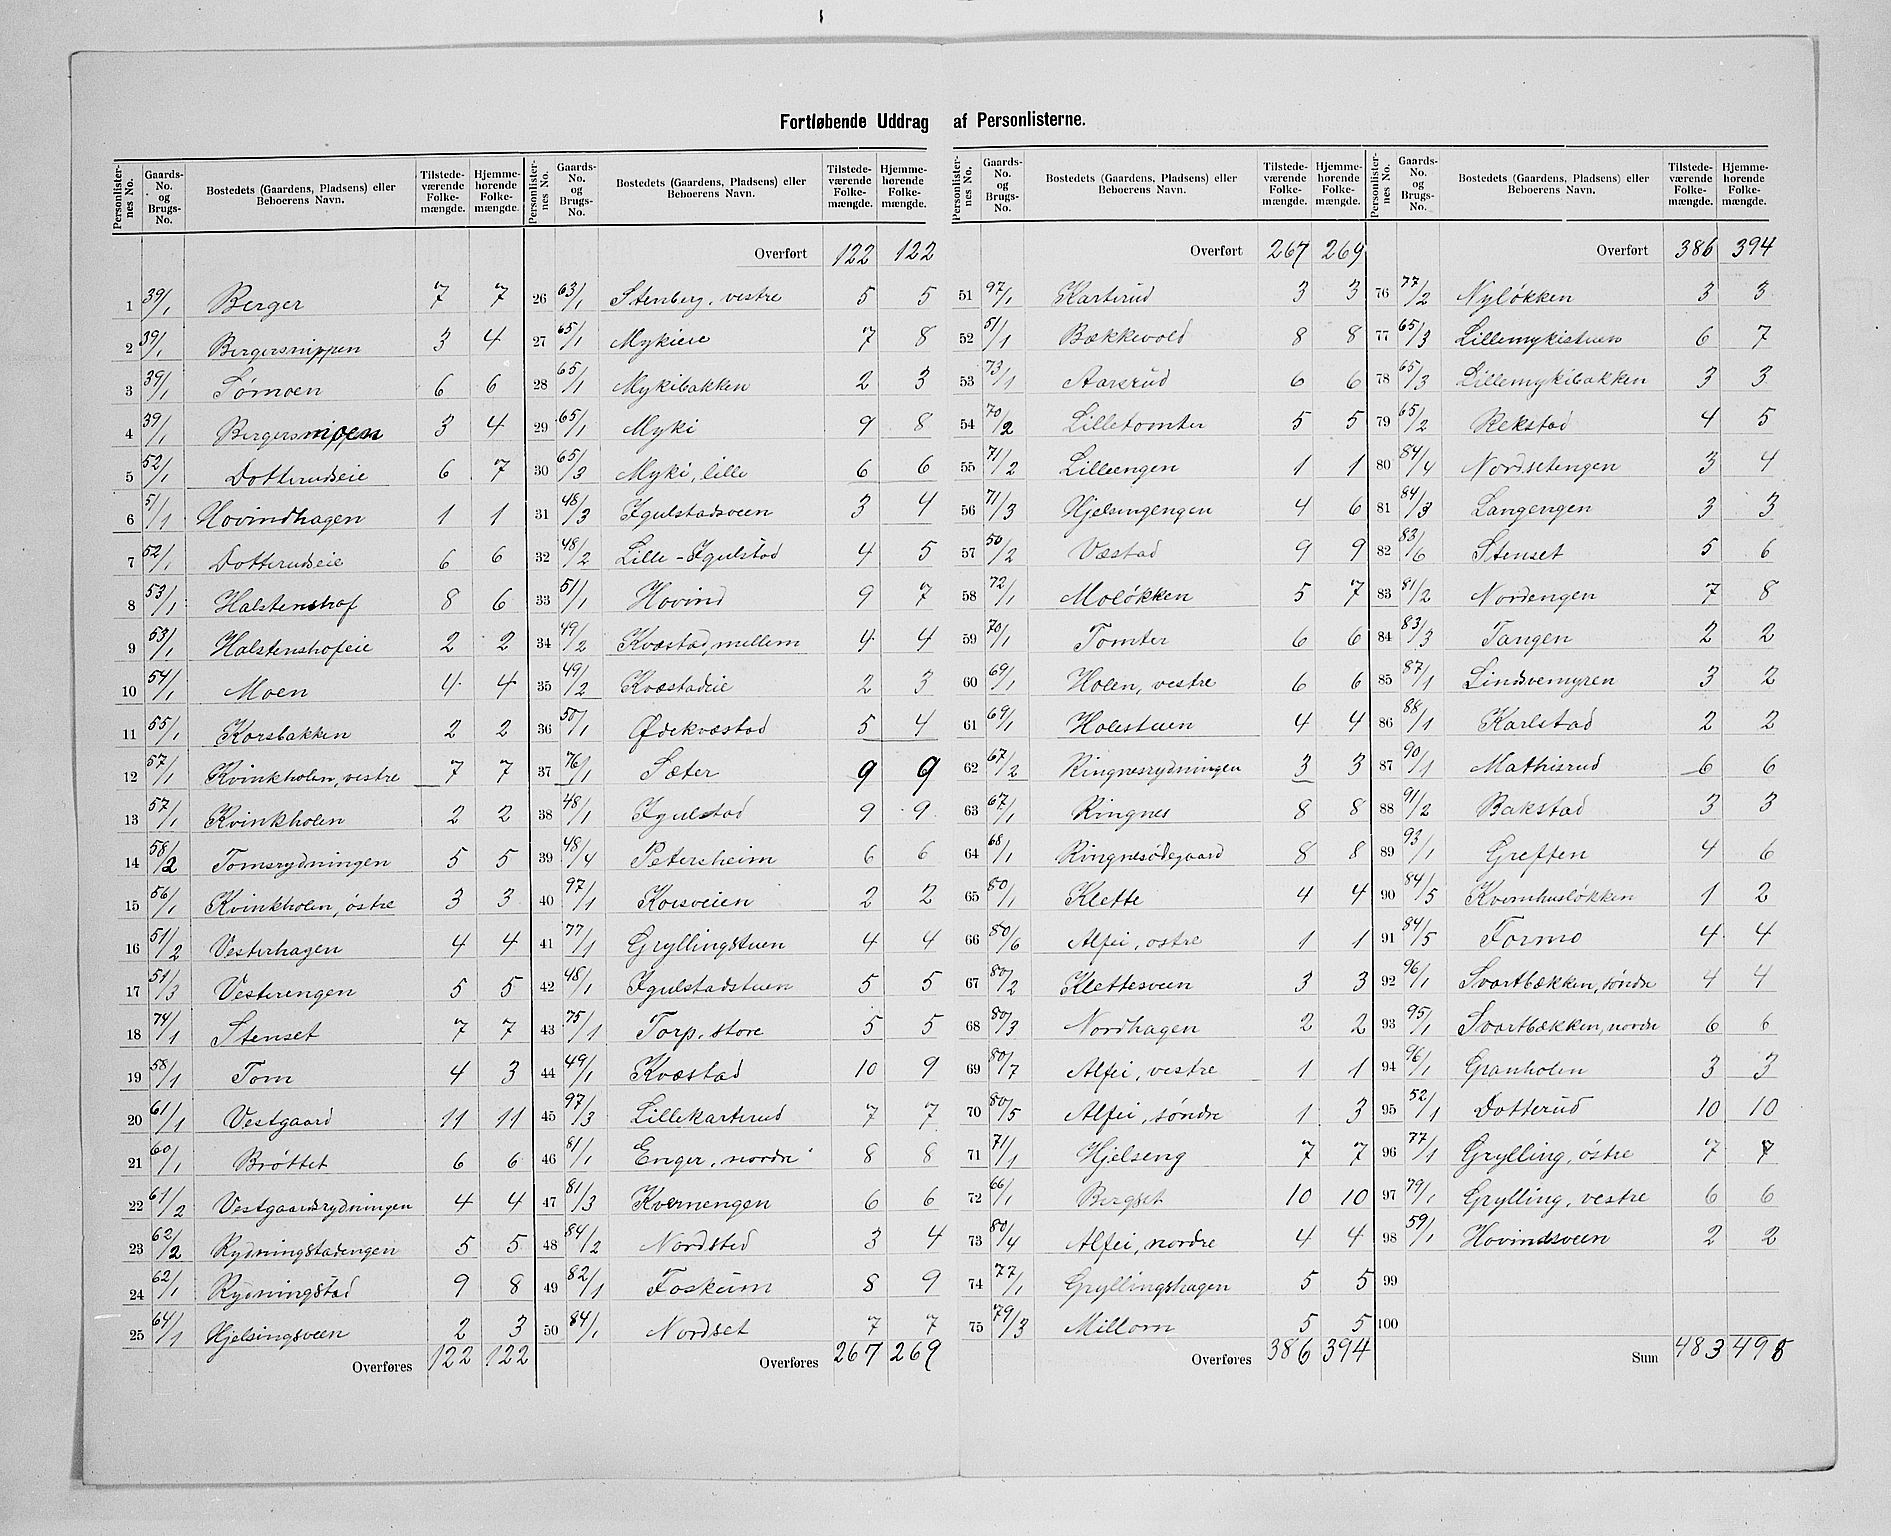 Fortløbende Uddrag af Personlisterne.
Personlister-nes No. | Gaards-No. og Brugs-No. | Bostedets (Gaardens, Pladsens) eller Beboerens Navn. | Tilstede-værende Folke-mængde. | Hjemme-hørende Folke-mængde.
1 39/1 Berger 7 7
2 39/1 Bergersnippen 3 4
3 39/1 Sørmoen 6 6
4 39/1 Bergersnippen 3 4
5 52/1 Dotterudseie 6 7
6 51/1 Hovindhagen 1 1
7 52/1 Dotterudseie 6 6
8 53/1 Halstenshof 8 6
9 53/1 Halstenshofeie 2 2
10 54/1 Moen 4 4
11 55/1 Korsbakken 2 2
12 57/1 Kvinkholen, vestre 7 7
13 57/1 Kvinkholen 2 2
14 58/2 Tomsrydningen 5 5
15 56/1 Kvinkholen, østre 3 3
16 51/2 Vesterhagen 4 4
17 51/3 Vesterengen 5 5
18 74/1 Stenset 7 7
19 58/1 Tom 4 3
20 61/1 Vestgaard 11 11
21 60/1 Brøttet 6 6
22 61/2 Vestgaardsrydningen 4 4
23 62/2 Rydningstadengen 5 5
24 62/1 Rydningstad 9 8
25 64/1 Hjelsingsveen 2 3
Overføres 122 122
Personlister-nes No. | Gaards-No. og Brugs-No. | Bostedets (Gaardens, Pladsens) eller Beboerens Navn. | Tilstede-værende Folke-mængde. | Hjemme-hørende Folke-mængde.
Overført 122 122
26 63/1 Stenberg, vestre 5 5
27 65/1 Mykieie 7 8
28 65/1 Mykibakken 2 3
29 65/1 Myki 9 8
30 65/3 Myki, lille 6 6
31 48/3 Igulstadsveen 3 4
32 48/2 Lille-Igulstad 4 5
33 51/1 Hovind 9 7
34 49/2 Kvæstad, mellem 4 4
35 49/2 Kvæstadeie 2 3
36 50/1 Ødekvæstad 5 4
37 76/1 Sæter 9 9
38 48/1 Igulstad 9 9
39 48/4 Petersheim 6 6
40 97/1 Korsveien 2 2
41 77/1 Gryllingstuen 4 4
42 48/1 Igulstadstuen 5 5
43 75/1 Torp, store 5 5
44 49/1 Kvæstad 10 9
45 97/3 Lillekarterud 7 7
46 81/1 Enger, nordre 8 8
47 81/3 Kvernengen 6 6
48 84/2 Nordsted 3 4
49 82/1 Foskum 8 9
50 84/1 Nordset 7 7
Overføres 267 269
Personlister-nes No. | Gaards-No. og Brugs-No. | Bostedets (Gaardens, Pladsens) eller Beboerens Navn. | Tilstede-værende Folke-mængde. | Hjemme-hørende Folke-mængde.
Overført 267 269
51 97/1 Karterud 3 3
52 51/1 Bækkevold 8 8
53 73/1 Aarsrud 6 6
54 70/2 Lilletomter 5 5
55 71/2 Lilleengen 1 1
56 71/3 Hjelsingengen 4 6
57 50/2 Væstad 9 9
58 72/1 Moløkken 5 7
59 70/1 Tomter 6 6
60 69/1 Holen, vestre 6 6
61 69/1 Holestuen 4 4
62 67/2 Ringnesrydningen 3 3
63 67/1 Ringnes 8 8
64 68/1 Ringnesødegaard 8 8
65 80/1 Klette 4 4
66 80/6 Alfei, østre 1 1
67 80/2 Klettesveen 3 3
68 80/3 Nordhagen 2 2
69 80/7 Alfei, vestre 1 1
70 80/5 Alfei, søndre 1 3
71 71/1 Hjelseng 7 7
72 66/1 Bergset 10 10
73 80/4 Alfei, nordre 4 4
74 77/1 Gryllingshagen 5 5
75 79/3 Millom 5 5
Overføres 386 394
Personlister-nes No. | Gaards-No. og Brugs-No. | Bostedets (Gaardens, Pladsens) eller Beboerens Navn. | Tilstede-værende Folke-mængde. | Hjemme-hørende Folke-mængde.
Overført 386 394
76 77/2 Nyløkken 3 3
77 65/3 Lillemykistuen 6 7
78 65/3 Lillemykibakken 3 3
79 65/2 Rekstad 4 5
80 84/4 Nordsetengen 3 4
81 84/3 Langengen 3 3
82 83/6 Stenset 5 6
83 81/2 Nordengen 7 8
84 83/3 Tangen 2 2
85 87/1 Lindsvemyren 3 2
86 88/1 Karlstad 2 2
87 90/1 Mathisrud 6 6
88 91/2 Bakstad 3 3
89 93/1 Greften 4 6
90 84/5 Kvernhusløkken 1 2
91 84/5 Formo 4 4
92 96/1 Svartbækken, søndre 4 4
93 95/1 Svartbækken, nordre 6 6
94 96/1 Granholen 3 3
95 52/1 Dotterud 10 10
96 77/1 Grylling, østre 7 7
97 79/1 Grylling, vestre 6 6
98 59/1 Hovindsveen 2 2
99
100
Sum 483 498